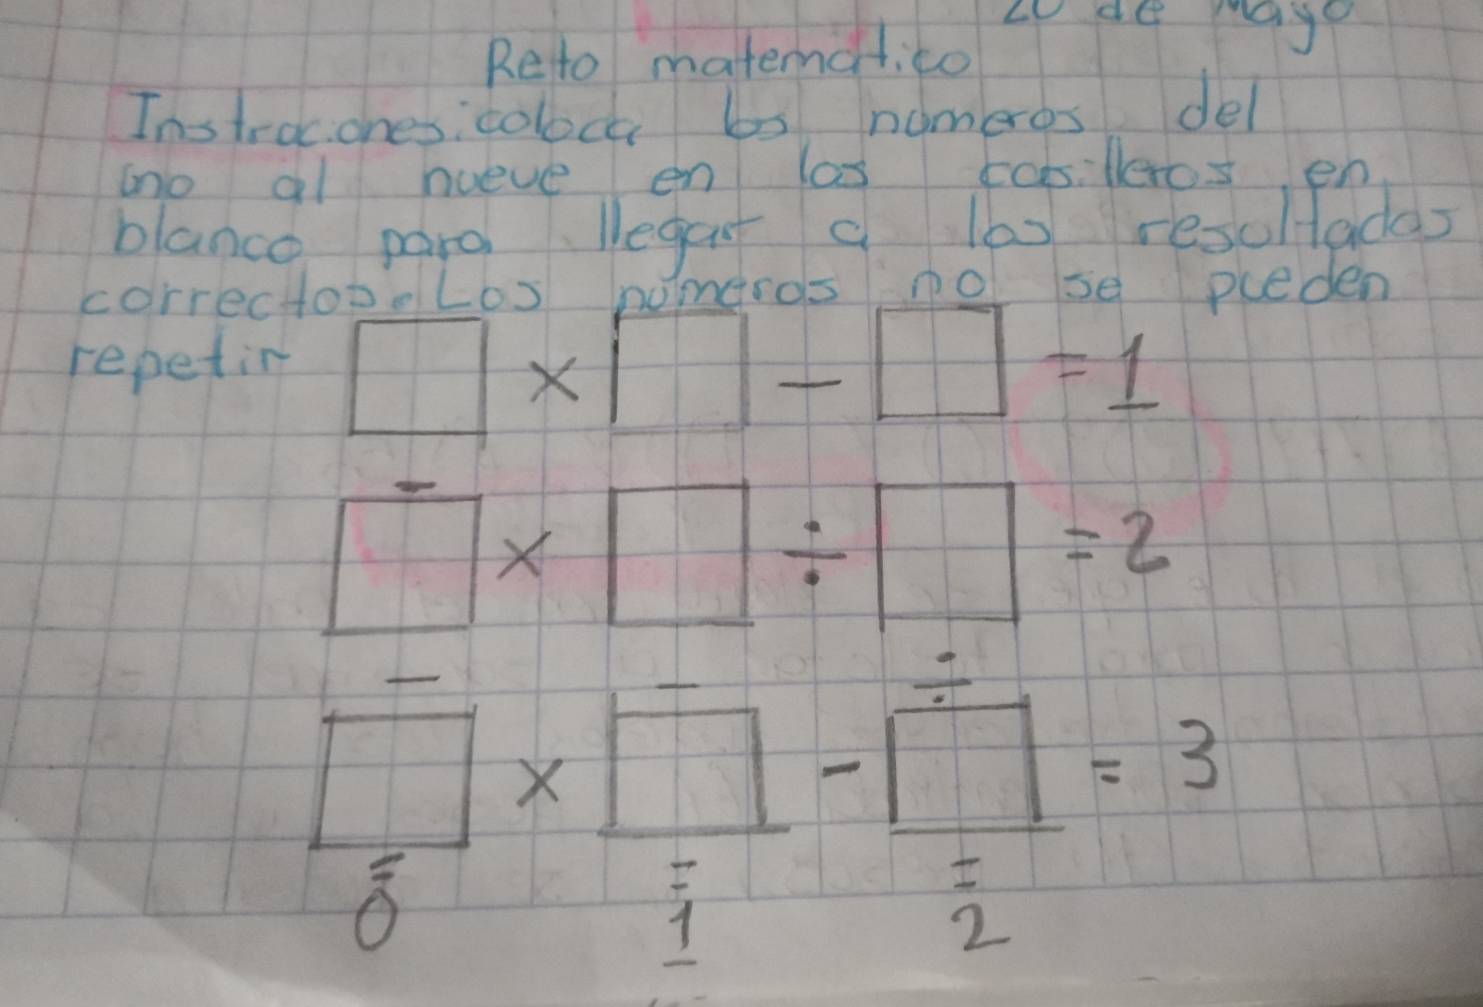 20 de Mayo
Reto matematico
Instrucciones: coloca los numeros del
uno al nueve en los casilleros en
blanco para llegar a los resultados
correctos. Los números no se pueden
repetir
× − = 1
−
× ÷ = 2
− − ÷
× − = 3
= = =
0 1 2